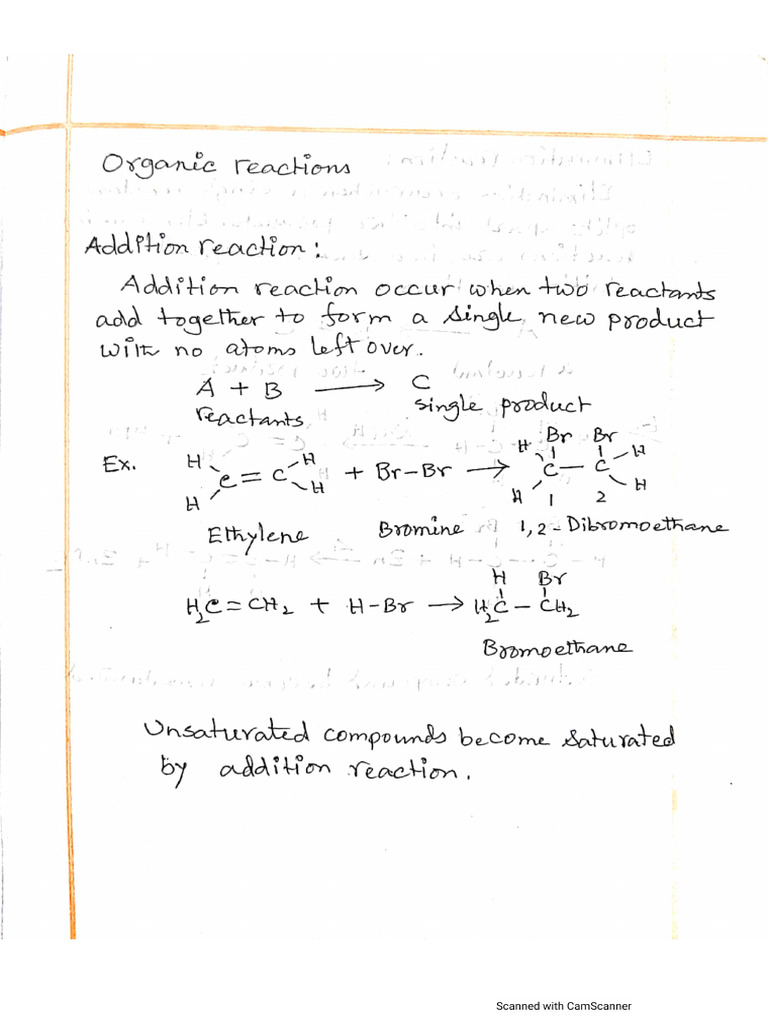 Organic reactions
Addition reaction:
Addition reaction occur when two reactants
add together to form a single new product
with no atoms left over.
A + B ⟶ C
reactants single product
Ex. H H Br Br
H C=C H + Br-Br → H C-C H
H H H 1 2 H
Ethylene Bromine 1,2-Dibromoethane
H Br
H₂C=CH₂ + H-Br → H₂C-CH₂
Bromoethane
Unsaturated compounds become saturated
by addition reaction.
Scanned with CamScanner